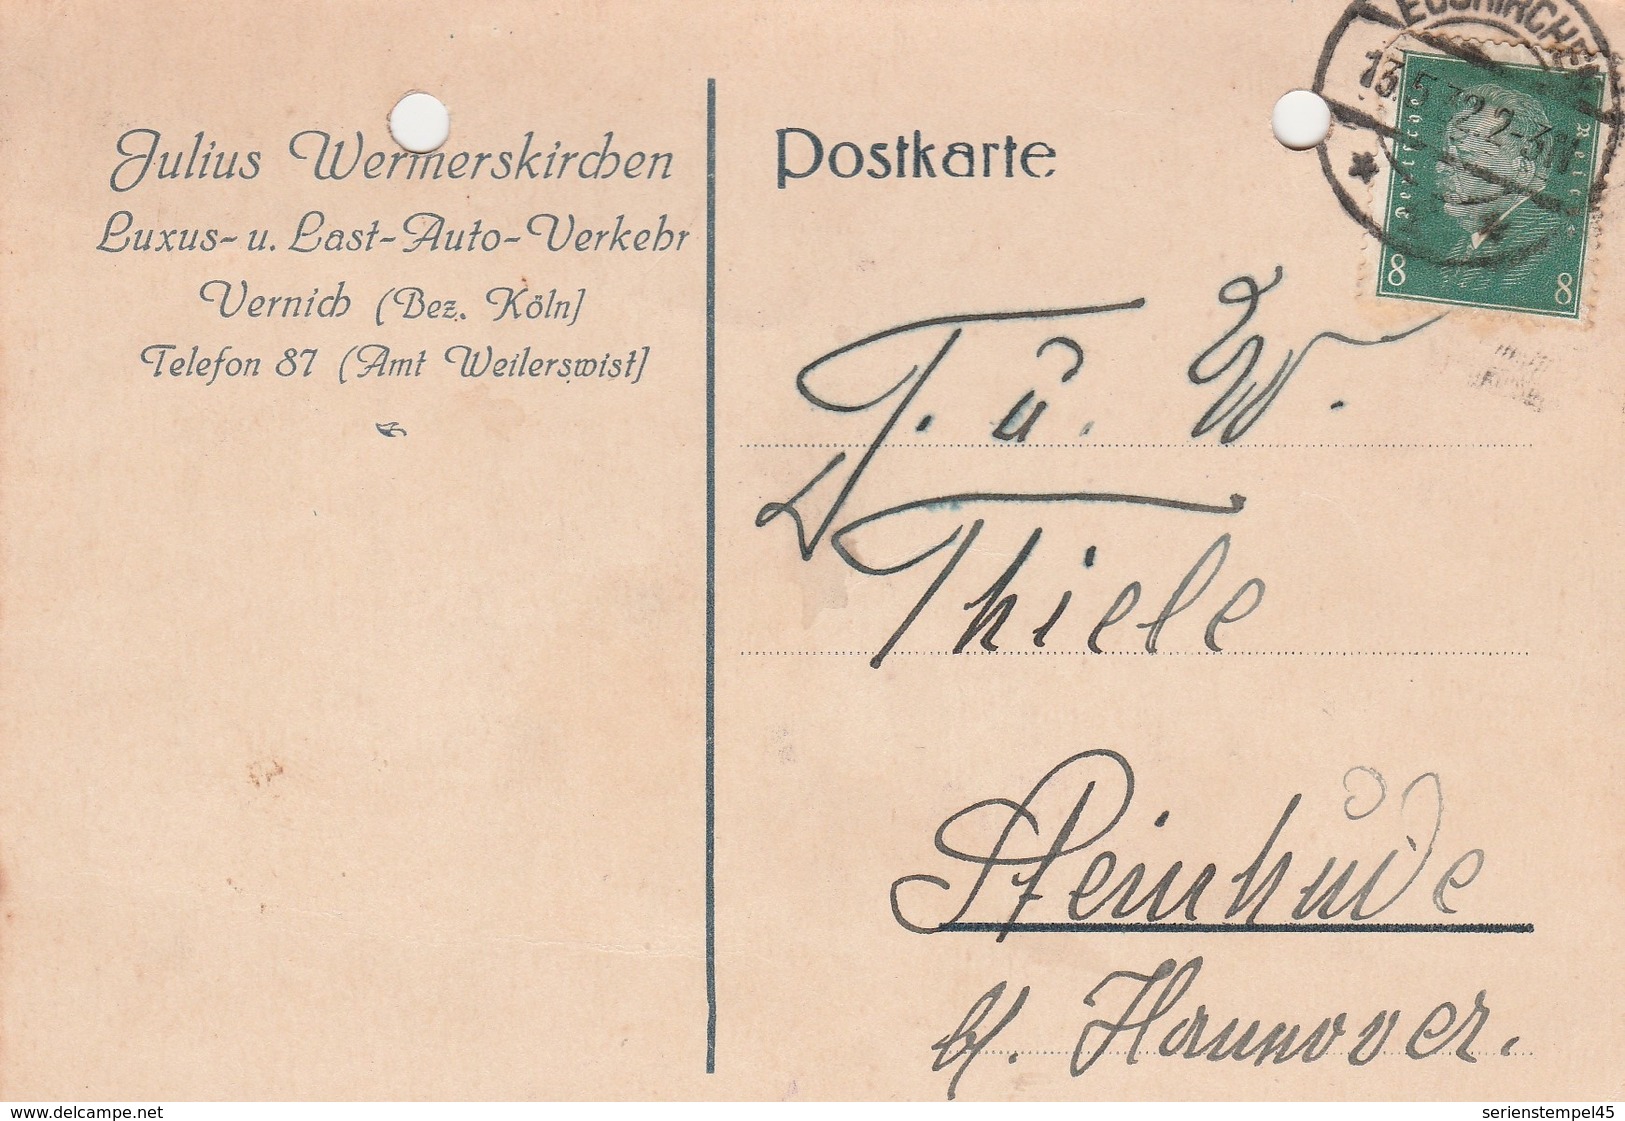 Julius Wermerskirchen
Luxus- u. Last-Auto-Verkehr
Vernich (Bez. Köln)
Telefon 87 (Amt Weilerswist)
Postkarte
EUSKIRCHEN
13.5.32. 2-3N
Deutsches Reich
8 8
T. u. W.
Thiele
Steinhude
b/. Hannover.
www.delcampe.net
serienstempel45